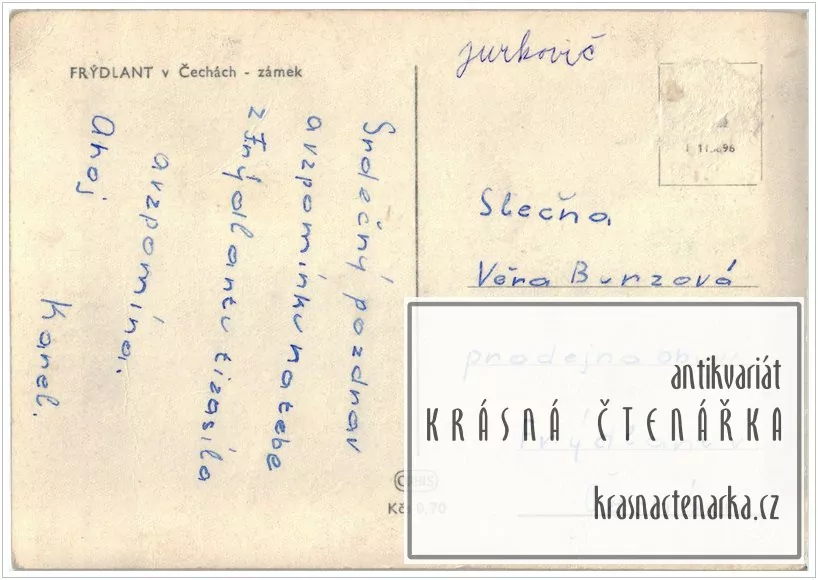 FRÝDLANT v Čechách - zámek
Srdečný pozdrav
a vzpomínku na tebe
z Frýdlantu ti zasíla
a vzpomína.
Ahoj
Karel.
jurkovič
Slečna
Věra Burzová
prodejna
ORBIS
Kčs 0,70
antikvariát
KRÁSNÁ ČTENÁŘKA
krasnactenarka.cz